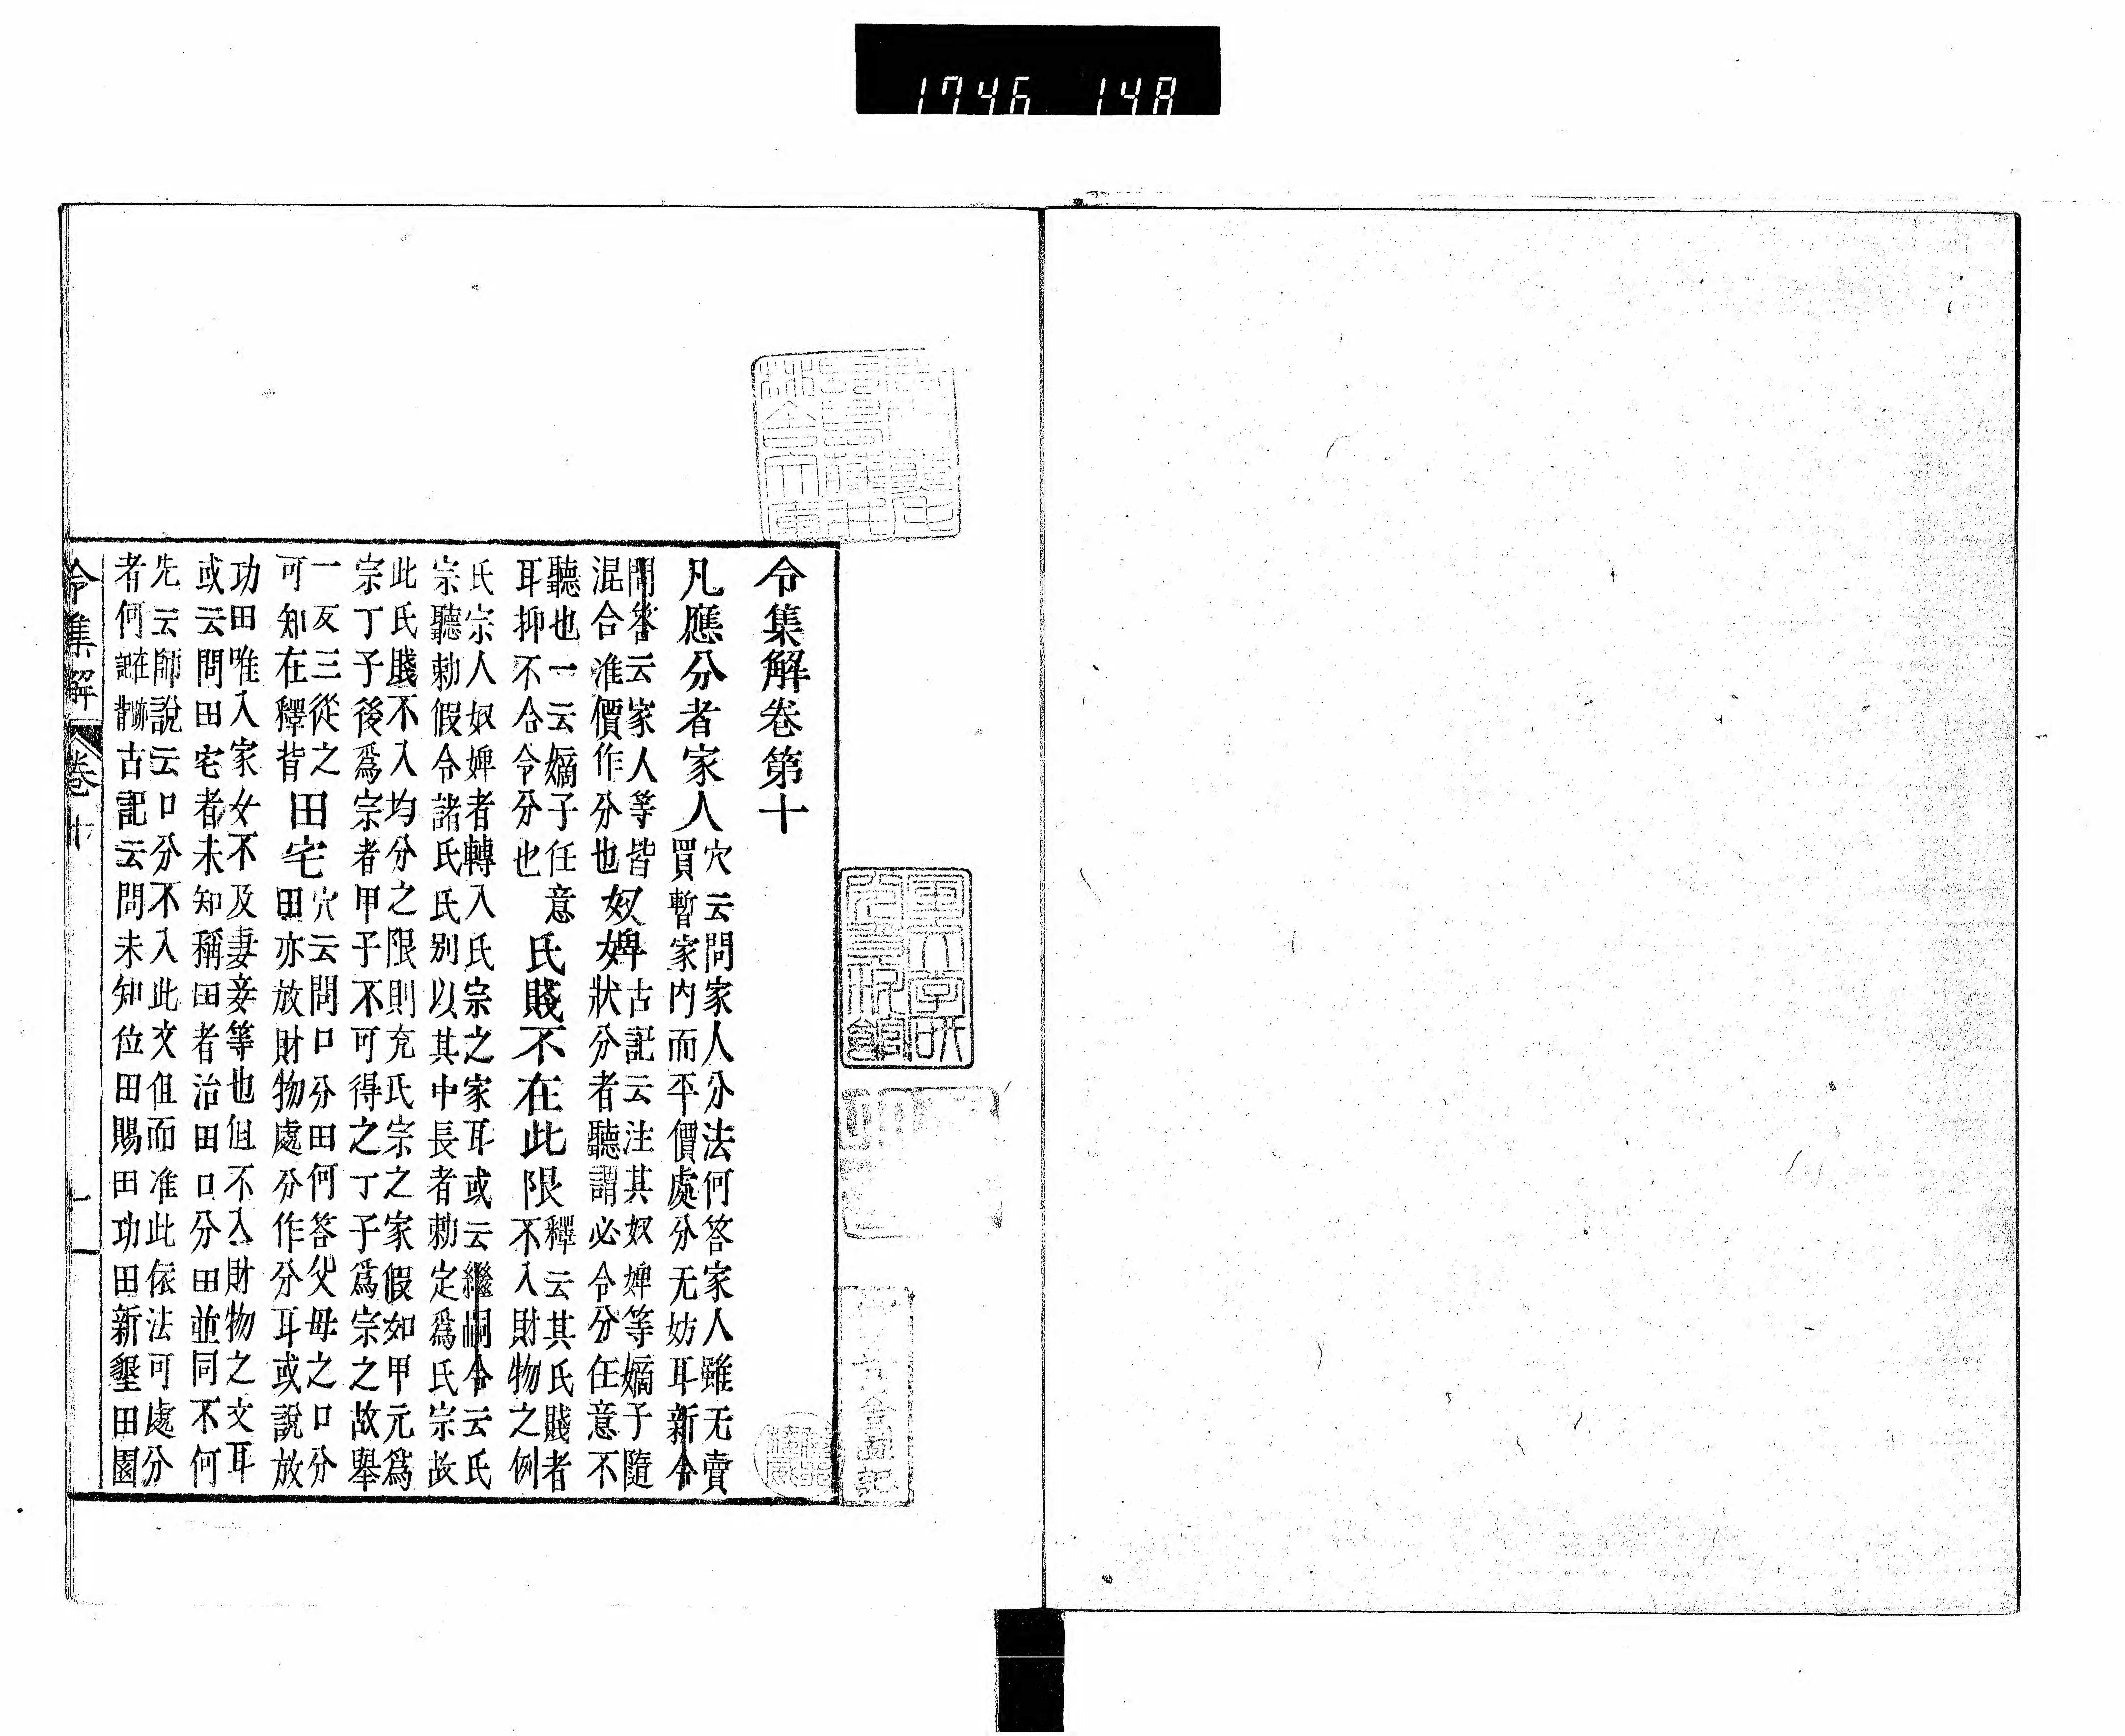 1746 148
令集解卷第十
凡應分者家人
穴云問家人分法何答家人雖无賣
買暫家內而平價處分无妨耳新令
問答云家人等皆
混合准價作分也
奴婢
古記云注其奴婢等嫡子隨
狀分者聽謂必令分任意不
聽也一云嫡子任意
耳抑不合令分也
氏賤不在此限
釋云其氏賤者
不入財物之例
氏宗人奴婢者轉入氏宗之家耳或云繼嗣令云氏
宗聽勅假令諸氏氏別以其中長者勅定爲氏宗故
此氏賤不入均分之限則充氏宗之家假如甲元爲
宗丁子後爲宗者甲子不可得之丁子爲宗之故舉
一反三從之
可知在釋背
田宅
穴云問口分田何答父母之口分
田亦放財物處分作分耳或說放
功田唯入家女不及妻妾等也但不入財物之文耳
或云問田宅者未知稱田者治田口分田並同不何
先云師說云口分不入此文但而准此依法可處分
者何
古記云問未知位田賜田功田新墾田園
令集解 卷十 一